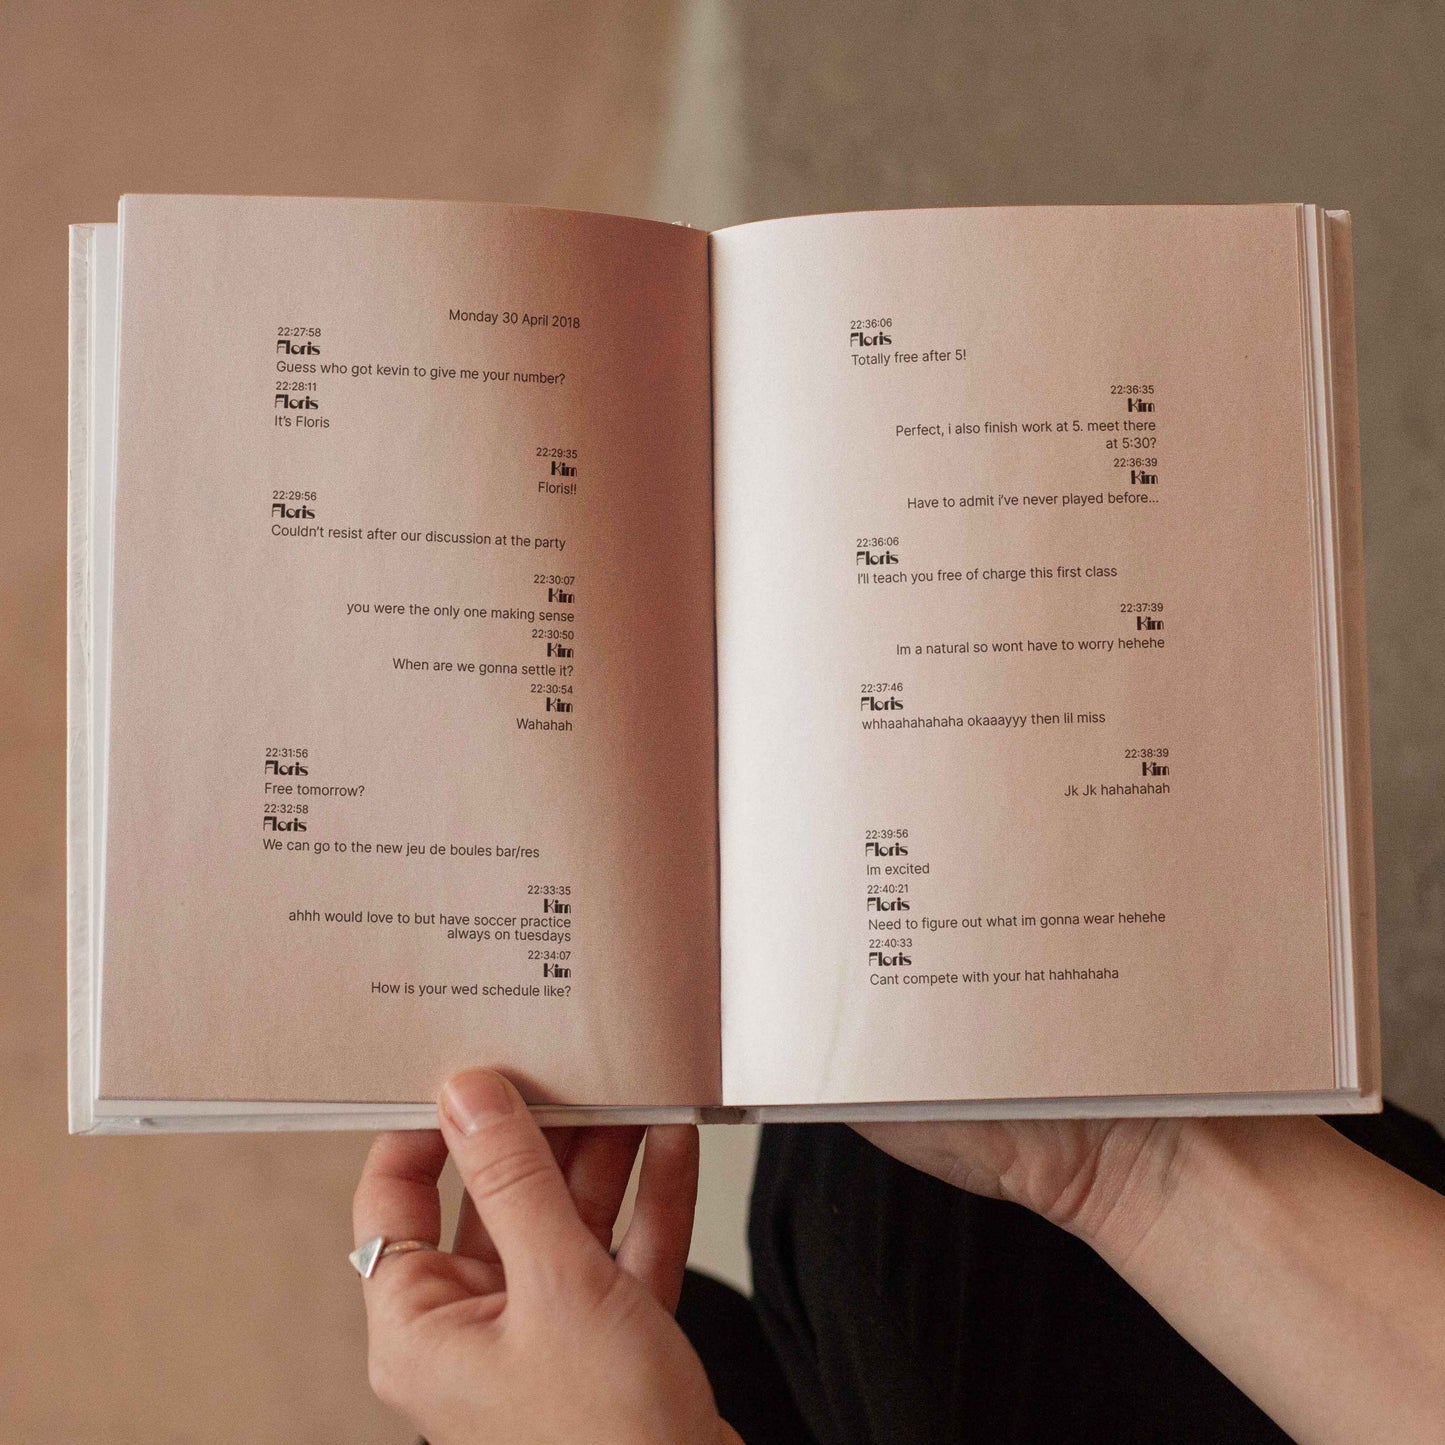 Monday 30 April 2018
22:27:58
Floris
Guess who got kevin to give me your number?
22:28:11
Floris
It's Floris
22:29:35
Kim
Floris!!
22:29:56
Floris
Couldn't resist after our discussion at the party
22:30:07
Kim
you were the only one making sense
22:30:50
Kim
When are we gonna settle it?
22:30:54
Kim
Wahahah
22:31:56
Floris
Free tomorrow?
22:32:58
Floris
We can go to the new jeu de boules bar/res
22:33:35
Kim
ahhh would love to but have soccer practice
always on tuesdays
22:34:07
Kim
How is your wed schedule like?
22:36:06
Floris
Totally free after 5!
22:36:35
Kim
Perfect, i also finish work at 5. meet there
at 5:30?
22:36:39
Kim
Have to admit i've never played before...
22:36:06
Floris
I'll teach you free of charge this first class
22:37:39
Kim
Im a natural so wont have to worry hehehe
22:37:46
Floris
whhaahahahaha okaaayyy then lil miss
22:38:39
Kim
Jk Jk hahahahah
22:39:56
Floris
Im excited
22:40:21
Floris
Need to figure out what im gonna wear hehehe
22:40:33
Floris
Cant compete with your hat hahhahaha